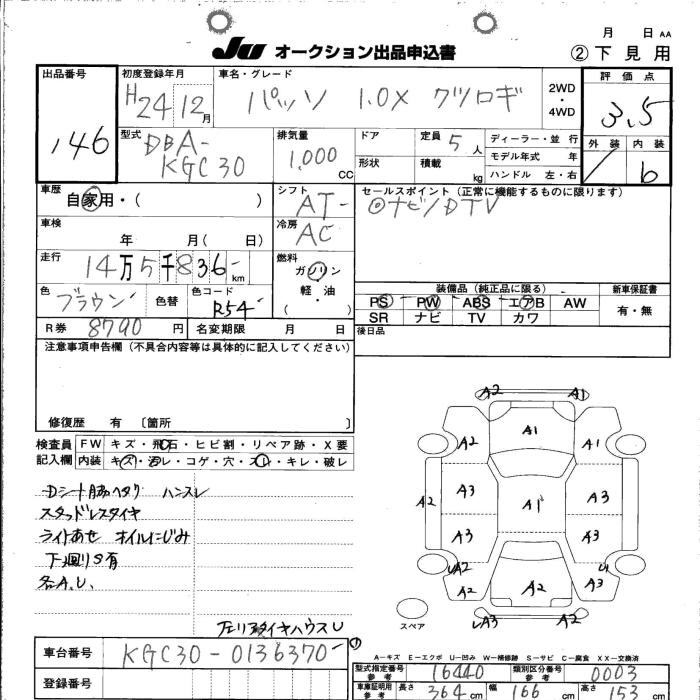 月 日 AA
JU オークション出品申込書
② 下見用
出品番号 146
初度登録年月 H24 12月
車名・グレード パッソ 1.0X クツロギ
2WD・4WD
評価点 3.5
型式 DBA-KGC30
排気量 1,000 CC
ドア
定員 5人
ディーラー・並行
形状
積載 kg
モデル年式 年
ハンドル 左・右
外装
内装 b
車歴 自家用・( )
シフト AT
セールスポイント (正常に機能するものに限ります)
◎ナビ/DTV
車検 年 月( 日)
冷房 AC
走行 14万5千836 km
燃料 ガソリン・軽・油 ( )
色 ブラウン
色替
色コード R54
装備品 (純正品に限る)
新車保証書
PS PW ABS エアB AW
SR ナビ TV カワ
有・無
R券 8790円
名変期限 月 日
後日品
注意事項申告欄 (不具合内容等は具体的に記入してください)
修復歴 有 〔箇所 〕
検査員記入欄
FW キズ・飛石・ヒビ割・リペア跡・X要
内装 キズ・汚レ・コゲ・穴・スレ・キレ・破レ
ハンスレ
スタッドレスタイヤ
ライトあせ オイルにじみ
下廻りS有
各A.U.
A2 A1
A2 A1 A1
A2 A3 A1 A3
A3 A3
UA2 U
A2 A2 A3
UA3 A2
スペア
車台番号 KGC30-0136370
登録番号
A－キズ E－エクボ U－凹み W－補修跡 S－サビ C－腐食 XX－交換済
型式指定番号 参考 16440
類別区分番号 参考 0003
車庫証明用 参考 長さ 364 cm 幅 166 cm 高さ 153 cm